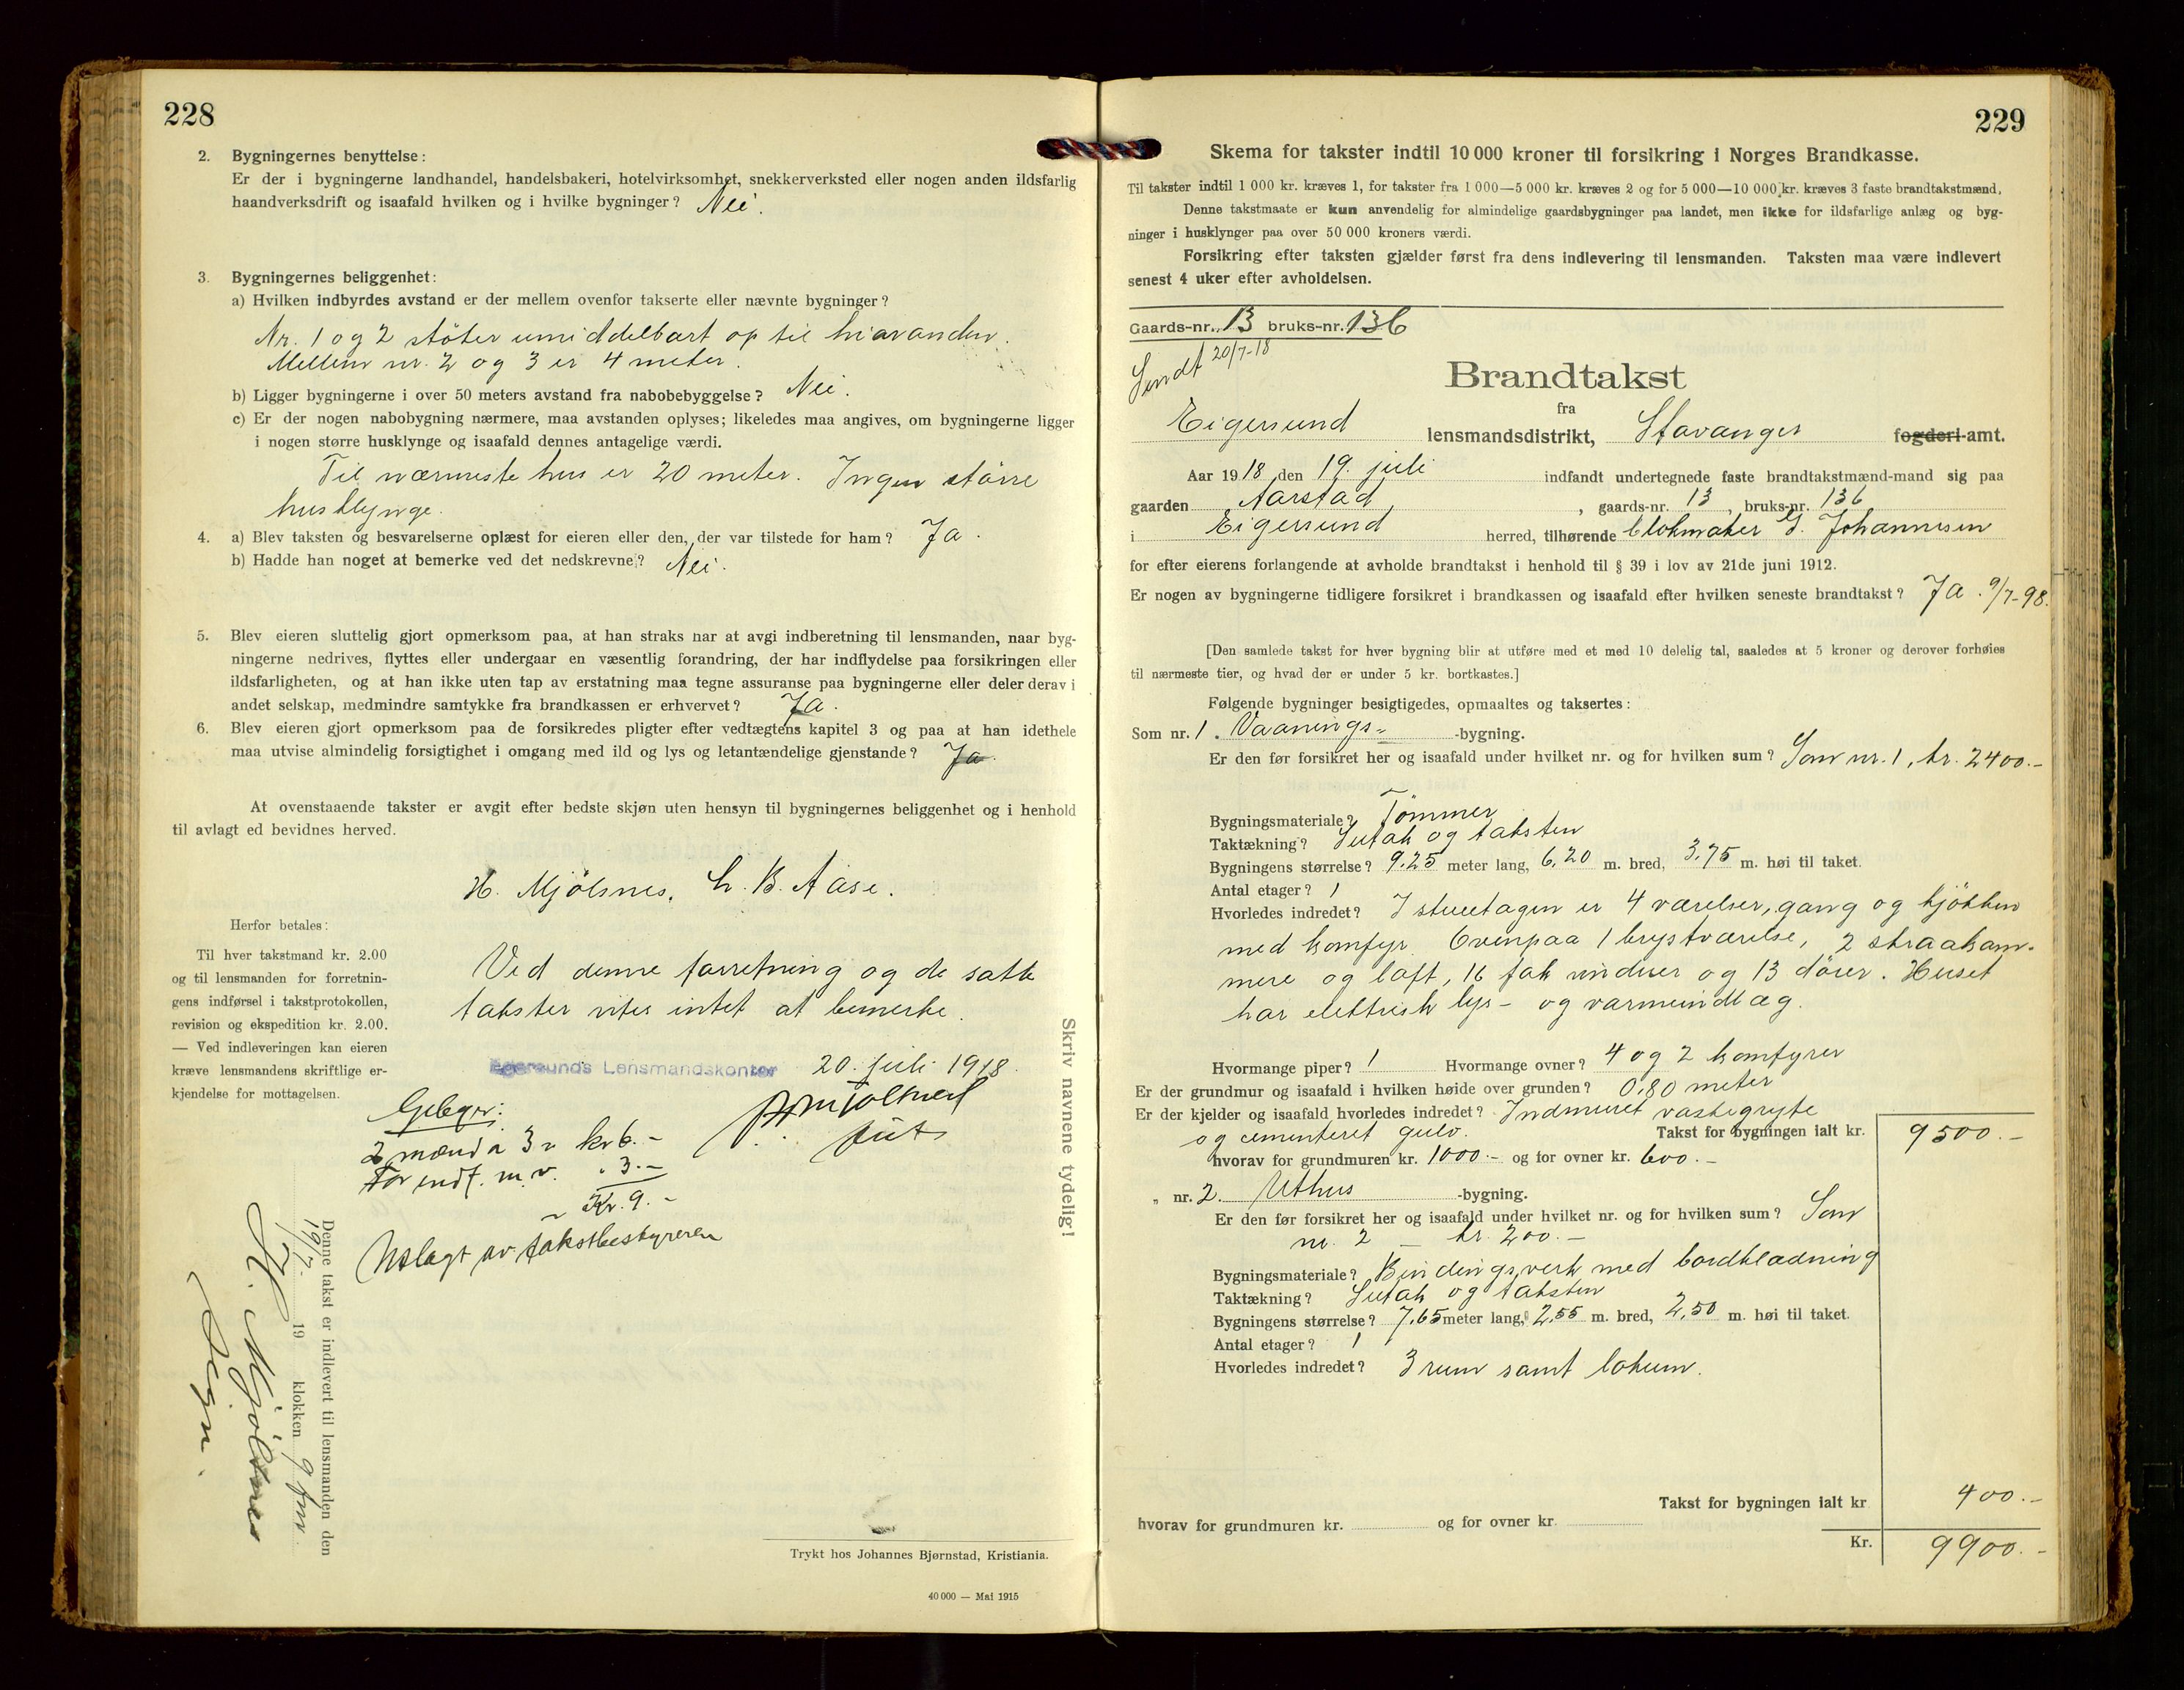 228
2. Bygningernes benyttelse:
Er der i bygningerne landhandel, handelsbakeri, hotelvirksomhet, snekkerverksted eller nogen anden ildsfarlig
haandverksdrift og isaafald hvilken og i hvilke bygninger? Nei.
3. Bygningernes beliggenhet:
a) Hvilken indbyrdes avstand er der mellem ovenfor takserte eller nævnte bygninger?
Nr. 1 og 2 støter umiddelbart op til hinanden.
Mellem nr. 2 og 3 er 4 meter.
b) Ligger bygningerne i over 50 meters avstand fra nabobebyggelse? Nei.
c) Er der nogen nabobygning nærmere, maa avstanden oplyses; likeledes maa angives, om bygningerne ligger
i nogen større husklynge og isaafald dennes antagelige værdi.
Til nærmeste hus er 20 meter. Ingen større
husklynge.
4. a) Blev taksten og besvarelserne oplæst for eieren eller den, der var tilstede for ham? Ja.
b) Hadde han noget at bemerke ved det nedskrevne? Nei.
5. Blev eieren sluttelig gjort opmerksom paa, at han straks har at avgi indberetning til lensmanden, naar byg-
ningerne nedrives, flyttes eller undergaar en væsentlig forandring, der har indflydelse paa forsikringen eller
ildsfarligheten, og at han ikke uten tap av erstatning maa tegne assuranse paa bygningerne eller deler derav i
andet selskap, medmindre samtykke fra brandkassen er erhvervet? Ja.
6. Blev eieren gjort opmerksom paa de forsikredes pligter efter vedtægtens kapitel 3 og paa at han idethele
maa utvise almindelig forsigtighet i omgang med ild og lys og letantændelige gjenstande? Ja.
At ovenstaaende takster er avgit efter bedste skjøn uten hensyn til bygningernes beliggenhet og i henhold
til avlagt ed bevidnes herved.
H. Mjölsnes, Chr. B. Aase.
Herfor betales:
Til hver takstmand kr. 2.00
og til lensmanden for forretnin-
gens indførsel i takstprotokollen,
revision og ekspedition kr. 2.00.
— Ved indleveringen kan eieren
kræve lensmandens skriftlige er-
kjendelse for mottagelsen.
Ved denne forretning og de satte
takster vites intet at bemerke.
Egersunds Lensmandskontor 20. juli 1918.
Gebyr:
2 mænd a 3 kr 6.-
For indf. m. v. " 3.-
Kr. 9.-
Utlagt av takstbestyreren
Denne takst er indlevert til lensmanden den
19/7 19 klokken 9 fm.
H. Mjölsnes
Skriv navnene tydelig!
Trykt hos Johannes Bjørnstad, Kristiania.
40 000 — Mai 1915
229
Skema for takster indtil 10 000 kroner til forsikring i Norges Brandkasse.
Til takster indtil 1 000 kr. kræves 1, for takster fra 1 000—5 000 kr. kræves 2 og for 5 000—10 000 kr. kræves 3 faste brandtakstmænd.
Denne takstmaate er kun anvendelig for almindelige gaardsbygninger paa landet, men ikke for ildsfarlige anlæg og byg-
ninger i husklynger paa over 50 000 kroners værdi.
Forsikring efter taksten gjælder først fra dens indlevering til lensmanden. Taksten maa være indlevert
senest 4 uker efter avholdelsen.
Gaards-nr. 13 bruks-nr. 136
Sendt 20/7-18
Brandtakst
fra
Eigersund lensmandsdistrikt, Stavanger fogderi-amt.
Aar 1918 den 19. juli indfandt undertegnede faste brandtakstmænd-mand sig paa
gaarden Aarstad, gaards-nr. 13, bruks-nr. 136
i Eigersund herred, tilhørende blokmaker G. Johannesen
for efter eierens forlangende at avholde brandtakst i henhold til § 39 i lov av 21de juni 1912.
Er nogen av bygningerne tidligere forsikret i brandkassen og isaafald efter hvilken seneste brandtakst? Ja. 9/7-98.
[Den samlede takst for hver bygning blir at utføre med et med 10 delelig tal, saaledes at 5 kroner og derover forhøies
til nærmeste tier, og hvad der er under 5 kr. bortkastes.]
Følgende bygninger besigtigedes, opmaaltes og taksertes:
Som nr. 1. Vaanings- -bygning.
Er den før forsikret her og isaafald under hvilket nr. og for hvilken sum? Som nr. 1, kr. 2400.-
Bygningsmateriale? Tömmer
Taktækning? Sutak og taksten
Bygningens størrelse? 9,25 meter lang, 6,20 m. bred, 3,75 m. høi til taket.
Antal etager? 1
Hvorledes indredet? I stueetagen er 4 værelser, gang og kjökken
med komfyr. Ovenpaa 1 brystværelse, 2 straakam-
mere og loft, 16 fak vinduer og 13 dörer. Huset
har elektrisk lys- og varmeindlæg.
Hvormange piper? 1 Hvormange ovner? 4 og 2 komfyrer
Er der grundmur og isaafald i hvilken høide over grunden? 0,80 meter
Er der kjelder og isaafald hvorledes indredet? Indmuret vaskegryte
og cementeret gulv. Takst for bygningen ialt kr. 9500.-
hvorav for grundmuren kr. 1000.- og for ovner kr. 600.-
„ nr. 2. Uthus -bygning.
Er den før forsikret her og isaafald under hvilket nr. og for hvilken sum? Som
nr. 2 - kr. 200.-
Bygningsmateriale? Bindingsverk med bordklædning
Taktækning? Sutak og taksten
Bygningens størrelse? 7,65 meter lang, 2,55 m. bred, 2,50 m. høi til taket.
Antal etager? 1
Hvorledes indredet? 3 rum samt lokum.
Takst for bygningen ialt kr 400.-
hvorav for grundmuren kr. og for ovner kr.
Kr. 9900.-